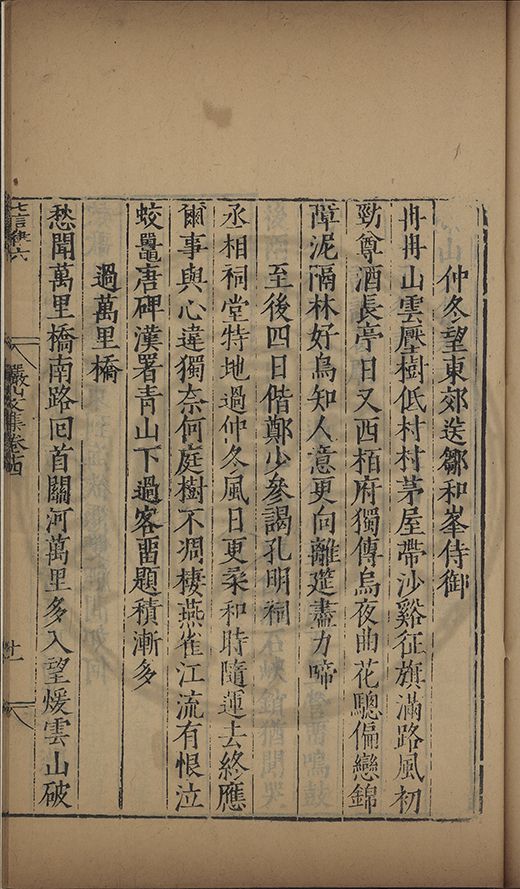 仲冬望東郊送鄒和峯侍御
冉冉山雲壓樹低村村茅屋帶沙谿征旗滿路風初
勁尊酒長亭日又西栢府獨傳烏夜曲花驄偏戀錦
障泥隔林好鳥知人意更向離筵盡力啼
至後四日偕鄭少參謁孔明祠
丞相祠堂特地過仲冬風日更柔和時隨運去終應
爾事與心違獨奈何庭樹不凋棲燕雀江流有恨泣
蛟鼉唐碑漢署青山下過客畱題積漸多
過萬里橋
愁聞萬里橋南路回首關河萬里多入望煖雲山破
七言律六
儼山文集卷十四
十一